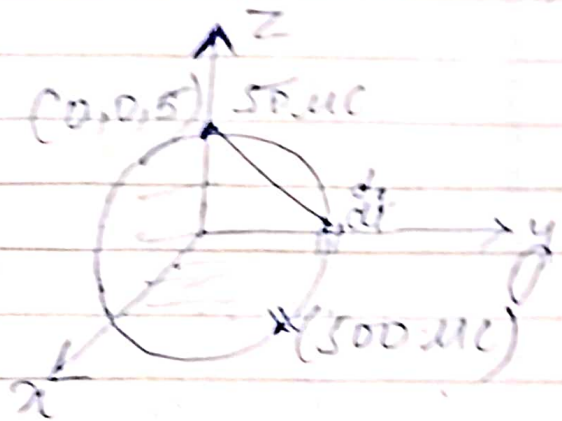 Z
(0,0,5) 50 μC
y
(500 μC)
x